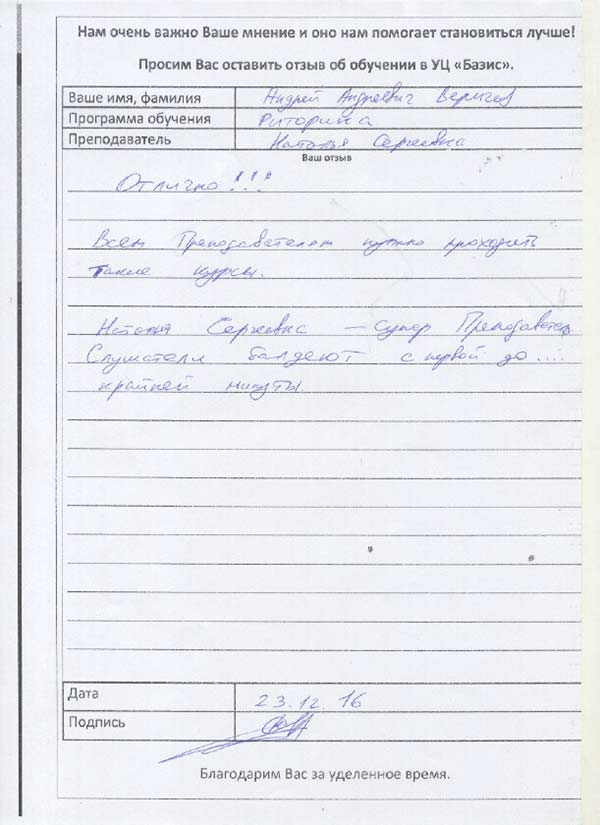 Нам очень важно Ваше мнение и оно нам помогает становиться лучше!
Просим Вас оставить отзыв об обучении в УЦ «Базис».
Ваше имя, фамилия Андрей Андреевич
Программа обучения Риторика
Преподаватель Наталья Сергеевна
Ваш отзыв
Отлично!!!
Всем Преподавателям нужно проходить
такие курсы.
Наталья Сергеевна — супер Преподаватель
Слушатели балдеют с первой до....
крайней минуты.
Дата 23.12.16
Подпись
Благодарим Вас за уделенное время.